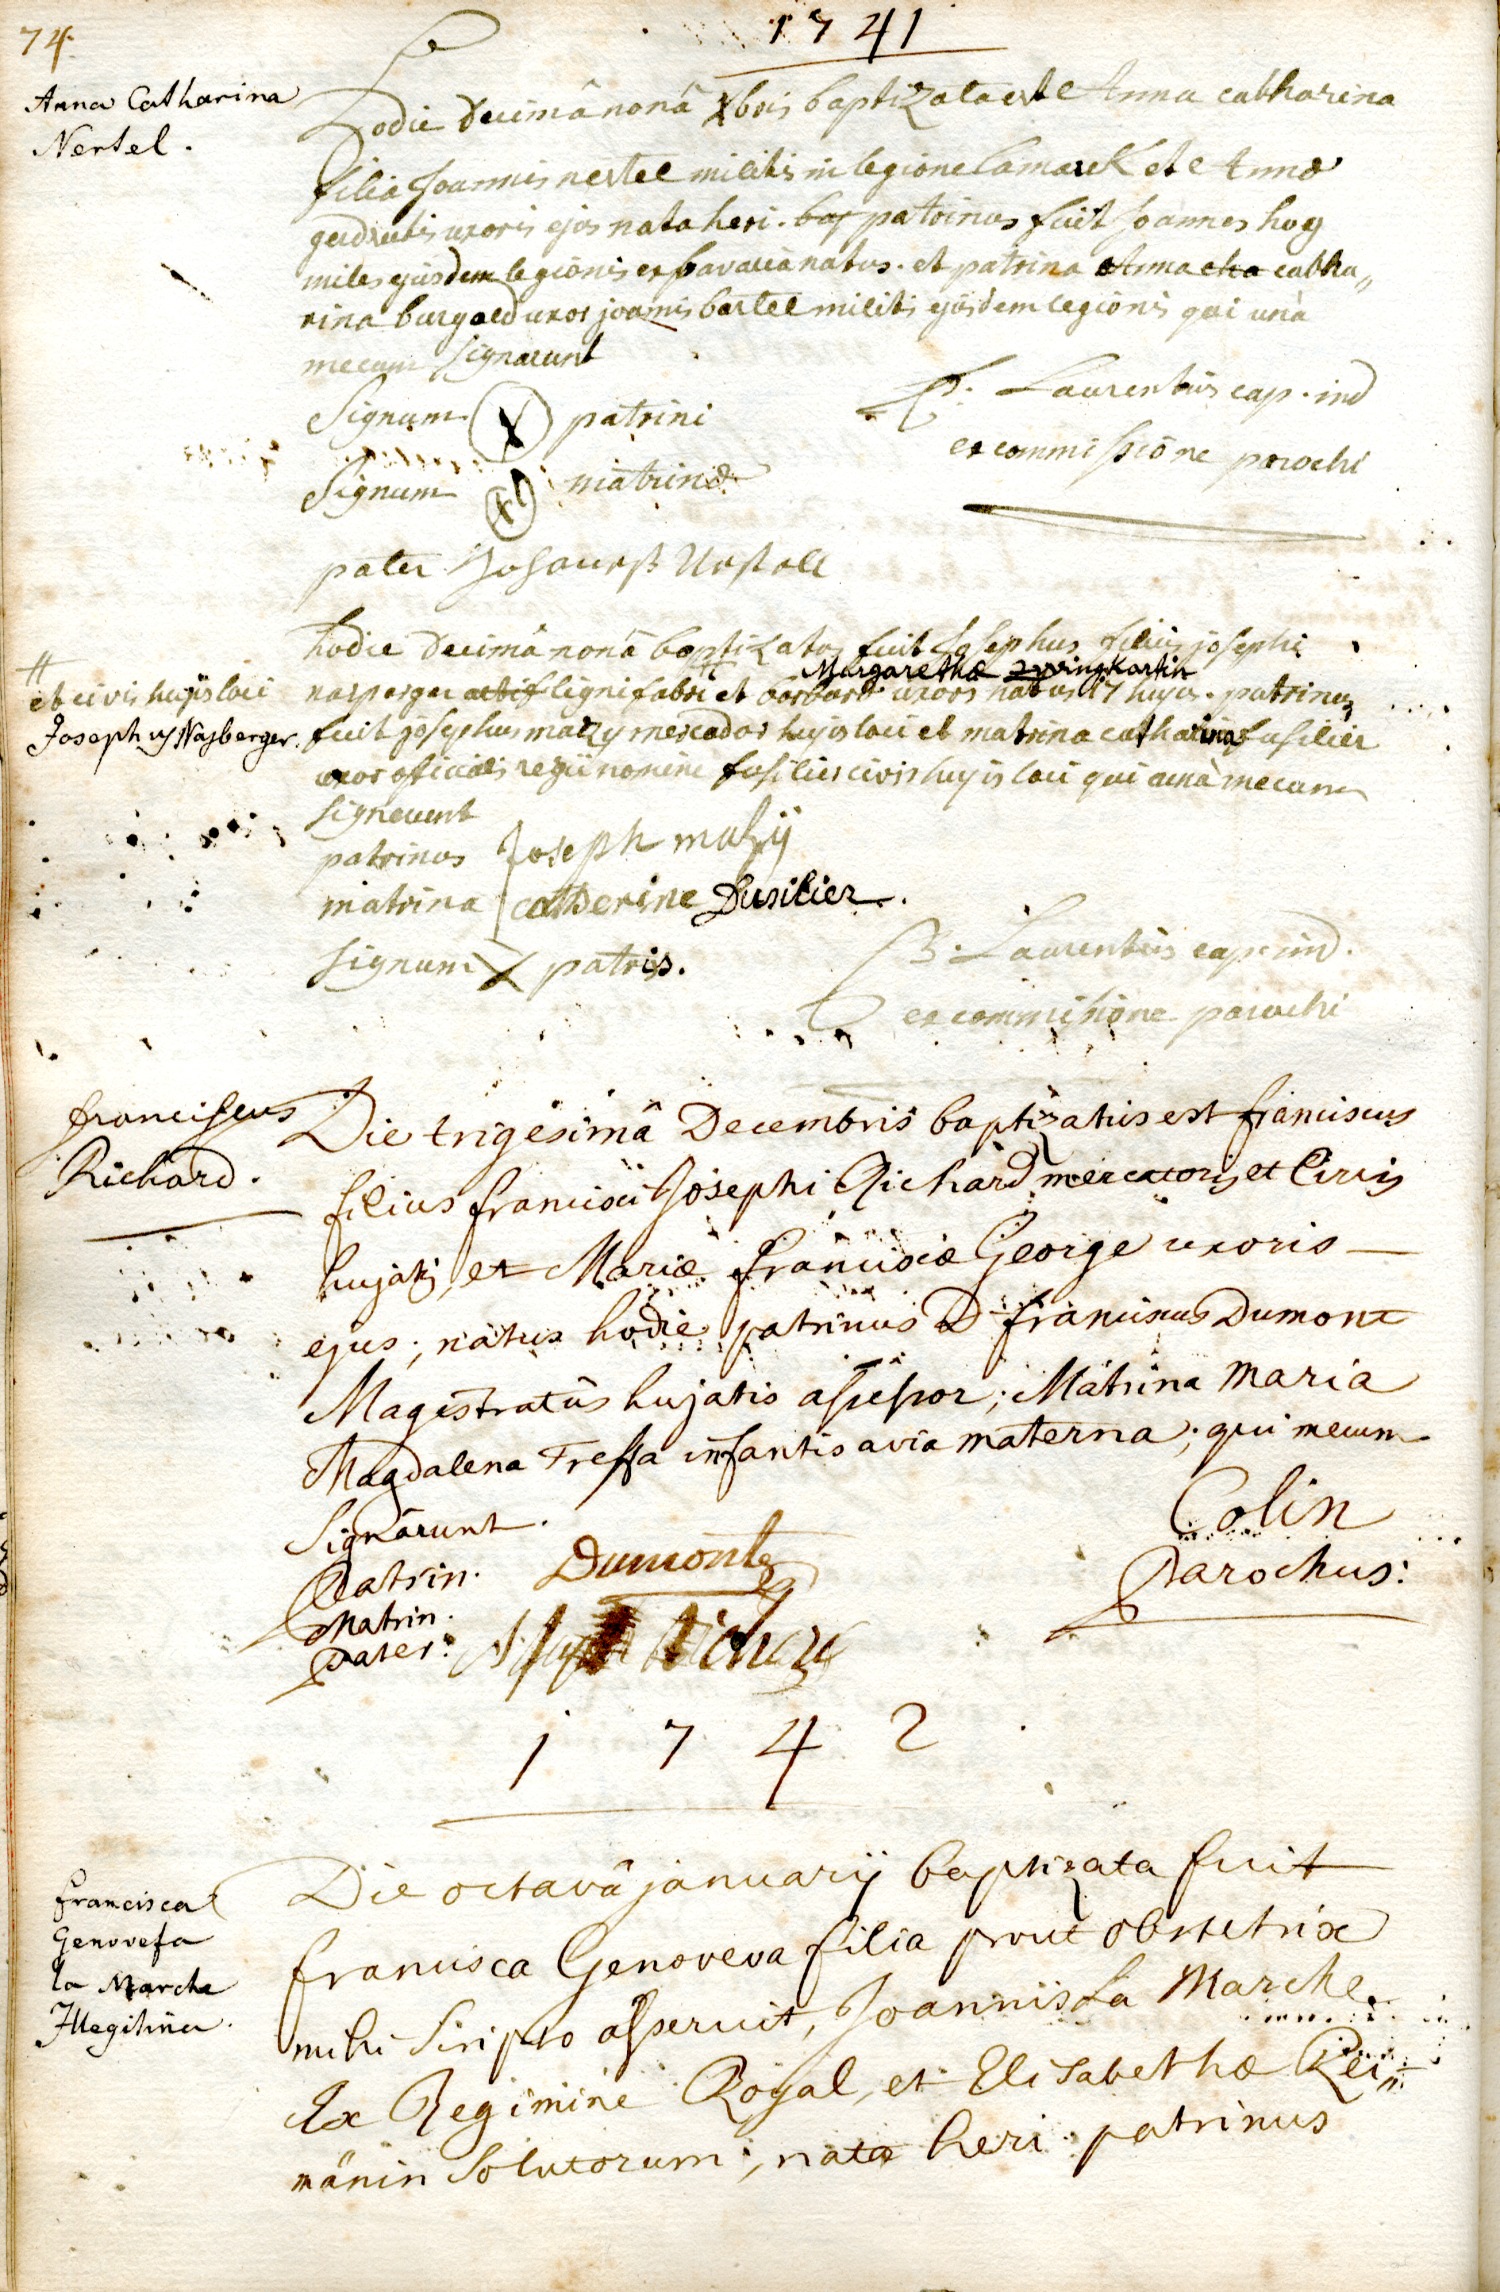 74.
1741
Anna Catharina
Nertel.
hodie decimâ nonâ Xbris baptizata est Anna catharina
filia Joannis nertel militis in legione Lamarck et Annæ
gerdrutis uxoris ejus nata heri. patrinus fuit Joannes hog
miles ejusdem legionis ex bavaria natus. et patrina Anna catha„
rina burgard uxor joannis bartel militis ejusdem legionis qui unà
mecum signarunt
Signum X patrini
Signum matrinæ
P. Laurentius cap. ind
ex commissione parochi
pater Johannes
hodie decimâ nonâ baptizatus fuit Josephus filius josephi
Margarethæ zwingkartin
nasperger lignifabri et barbaræ uxoris natus 17 hujus. patrinus
#
et civis hujus loci
Josephus Nasberger.
fuit josephus matzy mercador hujus loci et matrina catharina fusilier
uxor officialis regii nomine fusilier civis hujus loci qui unà mecum
signarunt
patrinus Joseph mutzij
matrina catherine Dusilier.
signum X patris.
P. Laurentius cap. ind.
ex commissione parochi
franciscus
Richard.
Die trigesimâ Decembris baptizatus est franciscus
filius francisci Josephi Richard mercatoris et Civis
hujatis, et Mariæ franciscæ George uxoris
ejus; natus hodie patrinus D franciscus Dumont
Magistratûs hujatis assessor; Matrina Maria
Magdalena Tressa infantis avia materna; qui mecum
Signarunt.
Colin
Parochus:
Patrin. Dumont
Matrin.
Pater:
1742
Francisca
Genovefa
la Marche
Illegitima.
Die octavâ januarij baptizata fuit
francisca Genoveva filia prout obstetrix
mihi scripto asseruit, Joannis La Marche
Ex Regimine Royal, et Elisabethæ Rei
mânin solutorum; nata heri patrinus